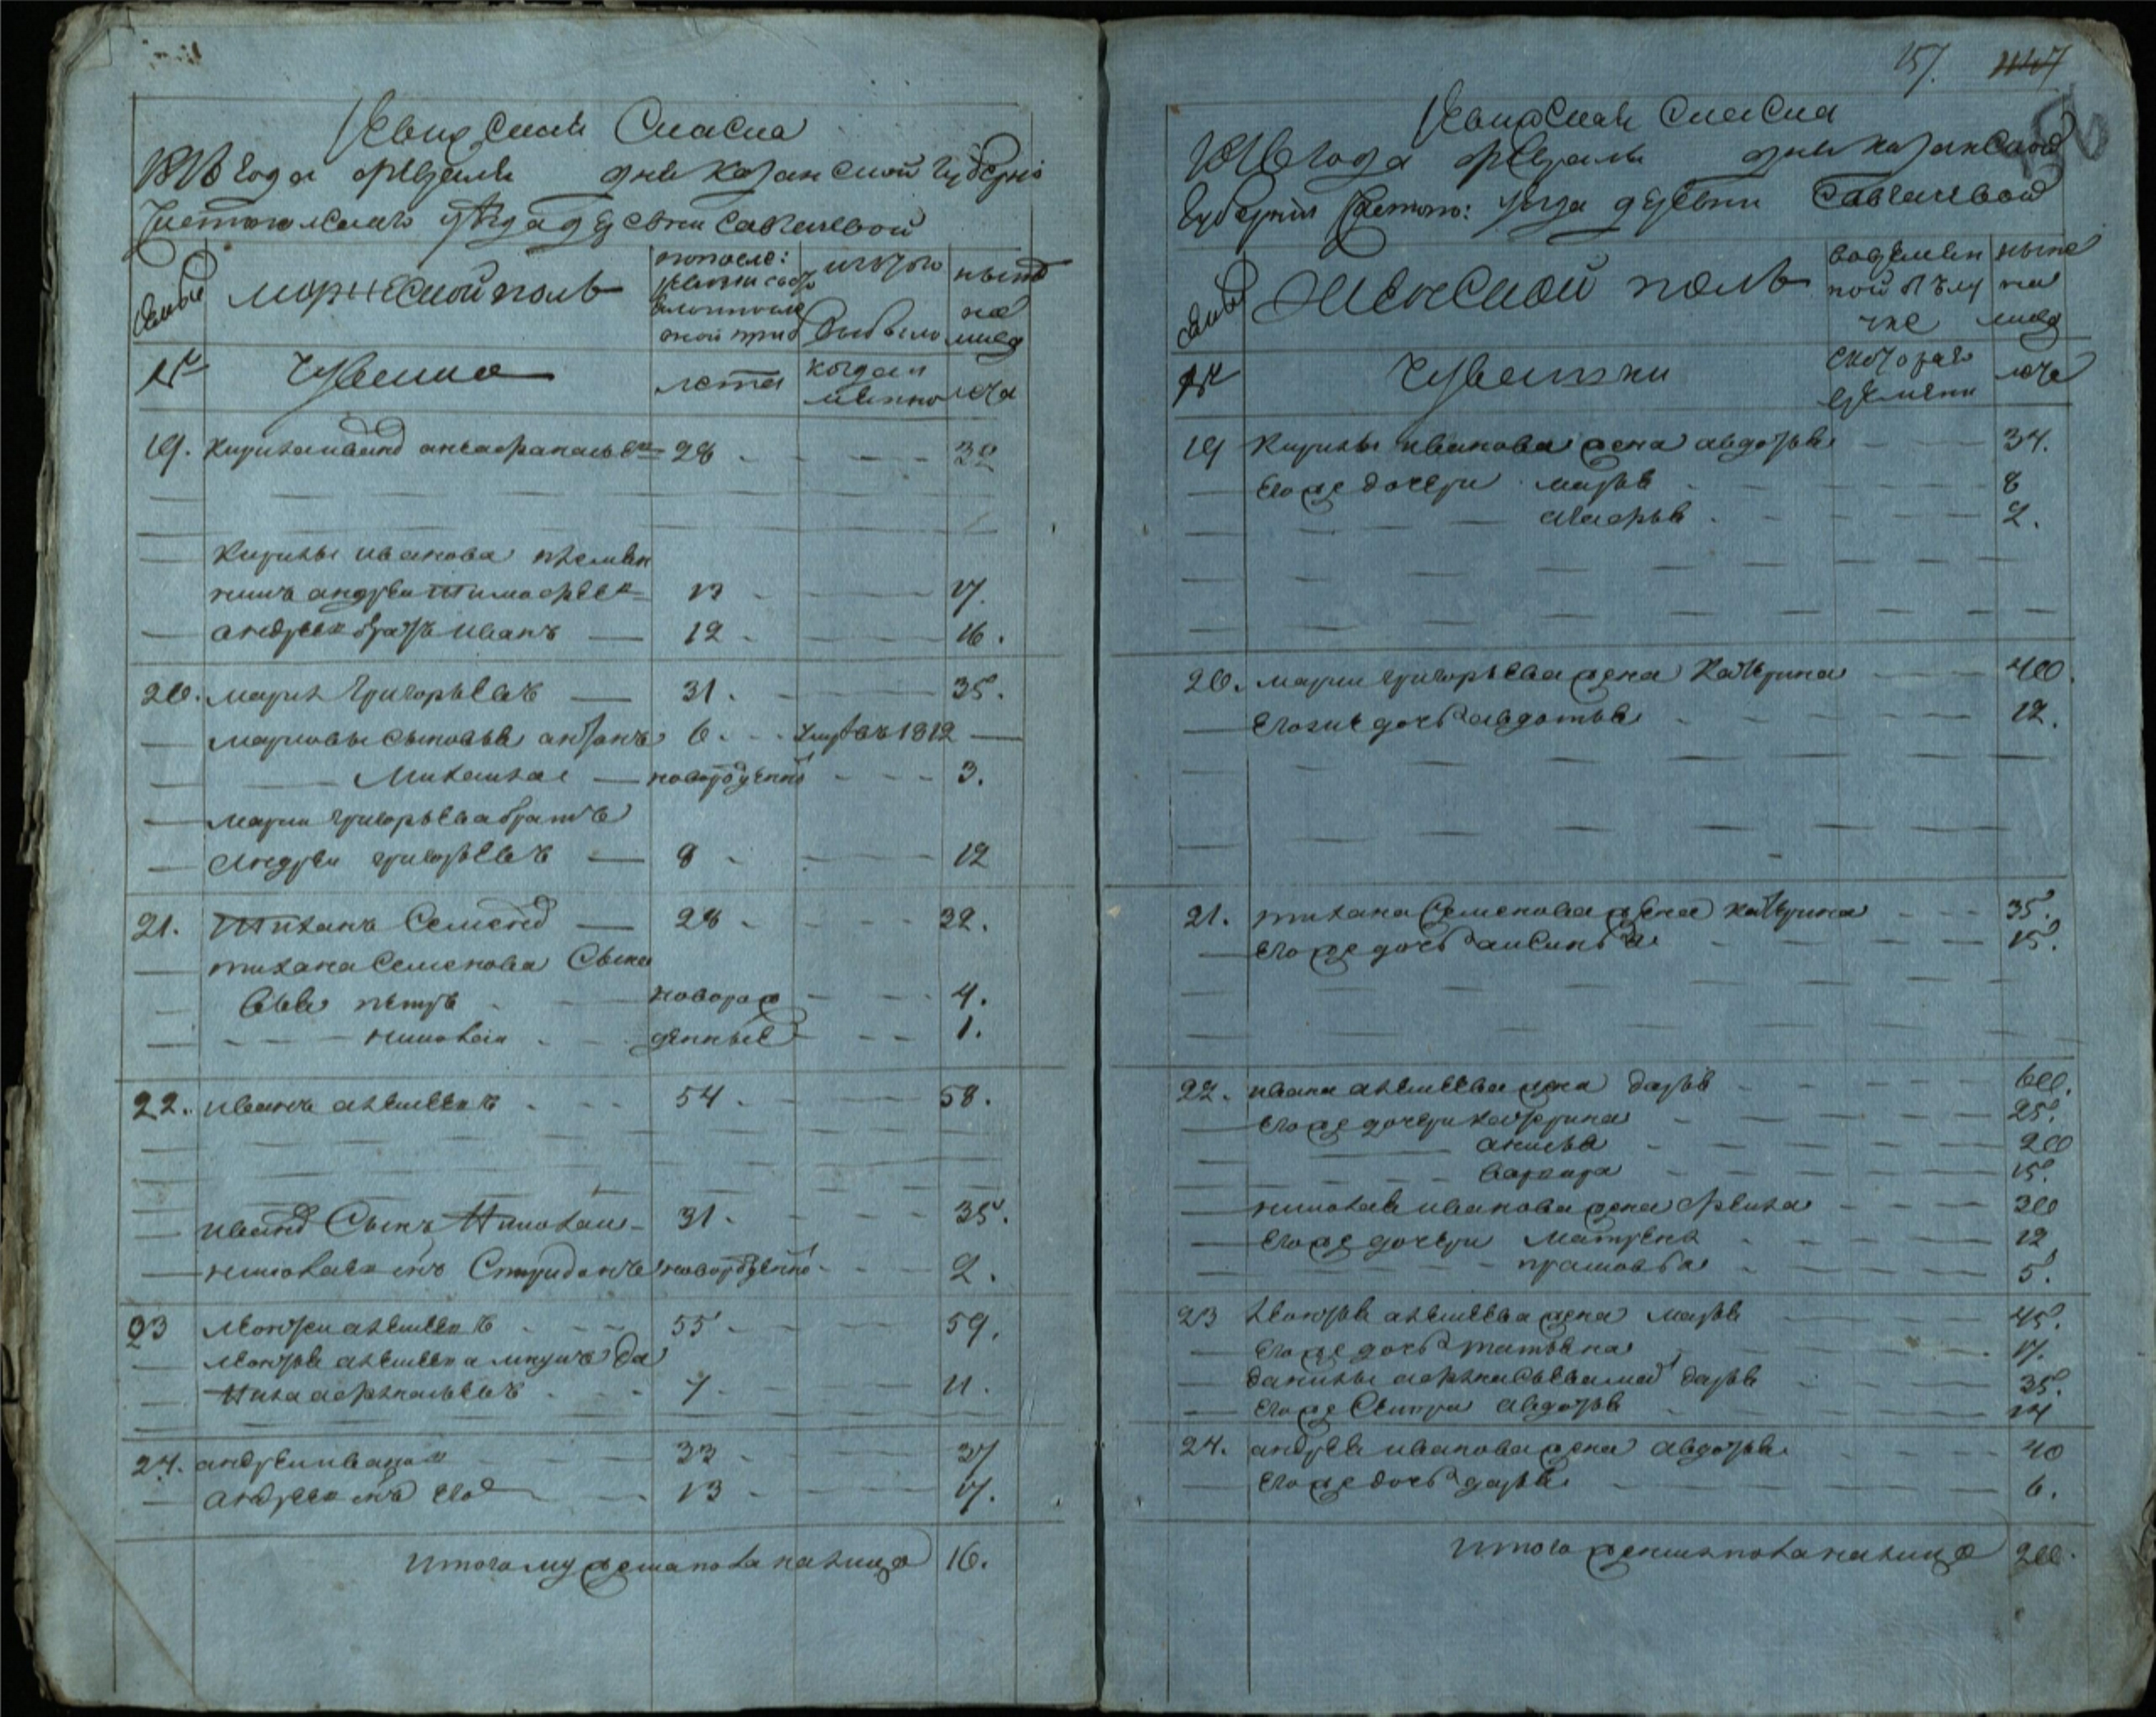 Ревизская Сказка
1816 года февраля дня казанской губерни
Чистопольскаго уезда деревни Савгачевой
семьи
мужеской полъ
по после:
ревизии состояло и после
оной приб
изъ того
выбыло
ныне
на
лицо
№
Чуваша
лета
когда и
имянно
лета
19. Кирила иванов 28 - - - 32
Кирилы иванова племян
никъ андреи тимофеев 13 - - - 17.
андреев братъ иванъ 12 - - - 16.
20. марки григорьевъ 31. - - 35.
марковы сыновья антонъ 6. - - умре въ 1812
Михаила новорожденной - - 3.
марки григорьева братъ
андреи григорьевъ 8 - - - 12
21. Тиханъ Семенов 28 - - - 32.
тихана Семенова Сыно
вья петръ - новорож - - - 4.
николаи - денные - - - 1.
22. иванъ алексеевъ - - 54 - - - 58.
иванов Сынъ Николаи 31. - - - 35.
николаев сынъ Спиридонъ новорожденной - - 2.
23 леонтеи алексеевъ - - 55 - - - 59.
леонтья алексеева внукъ да
нила афонасьевъ - - 7 - - - 11.
24. андреи иванов 33 - - - 37
андреев сынъ 13 - - - 17.
итого мужеска пола на лицо 16.
157.
Ревизская Сказка
1816 года февраля дня казанской
губернии Чистопо: уезда деревни Савгачевой
семьи
Женской полъ
во времян
ной отлу
чке
ныне
на
лицо
№
Чувашки
с котораго
времяни
лета
19 Кирилы иванова жена авдотья - - 34.
Его же дочери марья - - - 8
- - - - - - 2.
20. марки григорьева жена Катерина - - 40.
Его же дочь авдотья - - - 12.
21. тихана Семенова жена катерина - - 35.
Его же дочь аксинья - - - 15.
22. ивана алексеева жена дарья - - - 60.
Его же дочери катерина - - - 25.
акилина - - - 20
варвара - - - 15.
николая иванова жена фекла - - - 30
Его же дочери матрена - - - 12
прасковья - - - 5.
23 леонтья алексеева жена марья - - - 45.
Его же дочь татьяна - - - 17.
данилы афонасьева мать дарья - - - 35.
Его же Сестра авдотья - - - 14
24. андрея иванова жена авдотья - - - 40
Его же дочь дарья - - - 6.
итого женска пола на лицо 20.